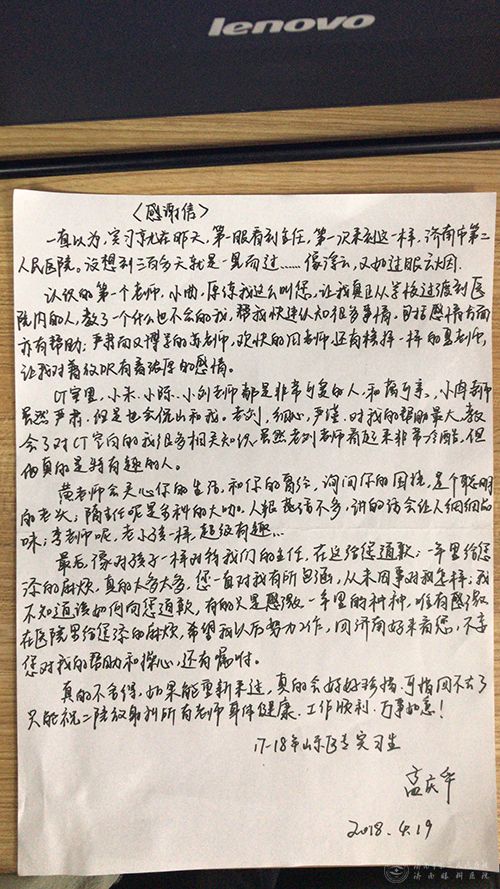 lenovo
〈感谢信〉
一直以为，实习就在昨天，第一眼看到主任，第一次来到这一样，济南市第二
人民医院。没想到三百多天就是一晃而过……像浮云，又如过眼云烟．
认识的第一个老师，小曲，原谅我这么叫您，让我真正从学校过渡到医
院内的人，教了一个什么也不会的我，帮我快速认知很多事情，包括感情方面
亦有帮助；严肃而又博学的老师，欢快的闫老师，还有榜样一样的老师，
让我对放射有着浓厚的感情。
CT室里，小米、小陈、小刘老师都是非常可爱的人，和蔼可亲，小冉老师
虽然严肃．但是也会侃山和我。老刘，细心，严谨，对我的帮助最大，教
会了对CT室向的我很多相关知识．虽然老刘老师看起来非常冷酷，但
他真的是特有趣的人。
黄老师会关心你的生活，和你的离给，询问你的困扰，是个聪明
的老头；隋主任呢是多科的大咖，人狠话不多，讲的话会让人细细品
味；李老师呢，老小孩一样，超级有趣…
最后，像对孩子一样对待我们的主任，在这给您道歉；一年里给您
添的麻烦，真的太多太多，您一直对我有所包涵，从未因事对我怎样；我
不知道该如何向您道歉，有的只是感激．一年里的种种，唯有感激
在医院里给您添的麻烦，希望我以后努力工作，回济南好来看您，不辜
您对我的帮助和操心，还有嘱咐。
真的不舍得，如果能重新来过，真的会好好珍惜．可惜回不去了
只能祝二院放射科所有老师身体健康．工作顺利．万事如意！
17-18年山东医专实习生
孟庆华
2018.4.19
济南眼科医院